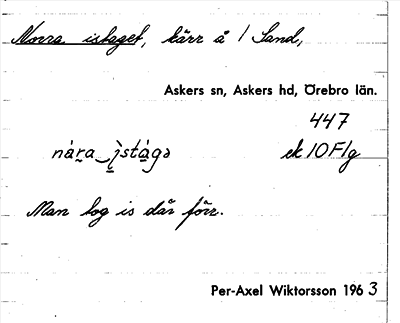 Norra istaget, kärr å 1 Sand,
Askers sn, Askers hd, Örebro län.
447
nára ìstágə ek 10 F1g
Man tog is där förr.
Per-Axel Wiktorsson 1963